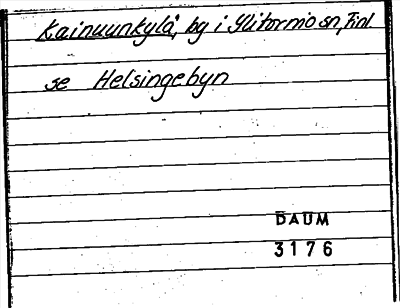 Kainuunkylä, by i Ylitornio sn, Finl
se Helsingebyn
DAUM
3176